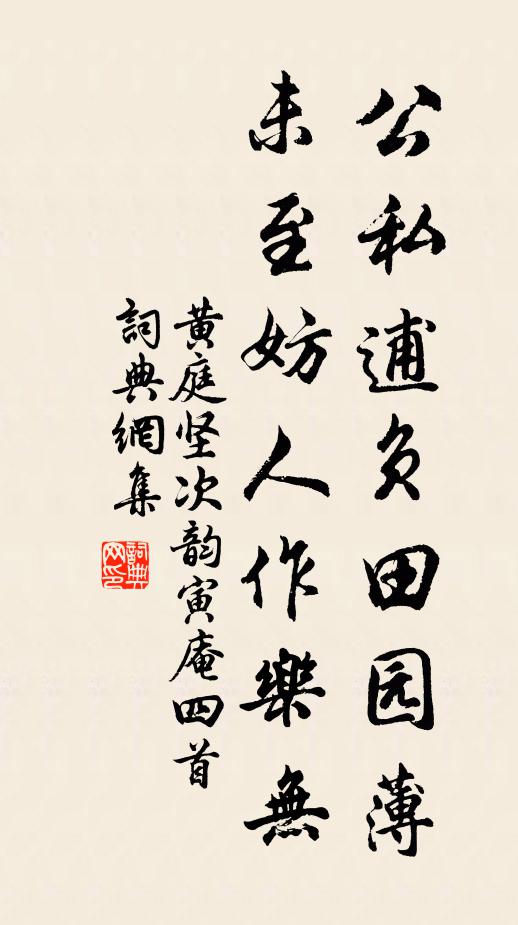 公私逋负田园薄
未至妨人作樂無
黄庭坚次韵寅庵四首
詞典網集
詞典网印